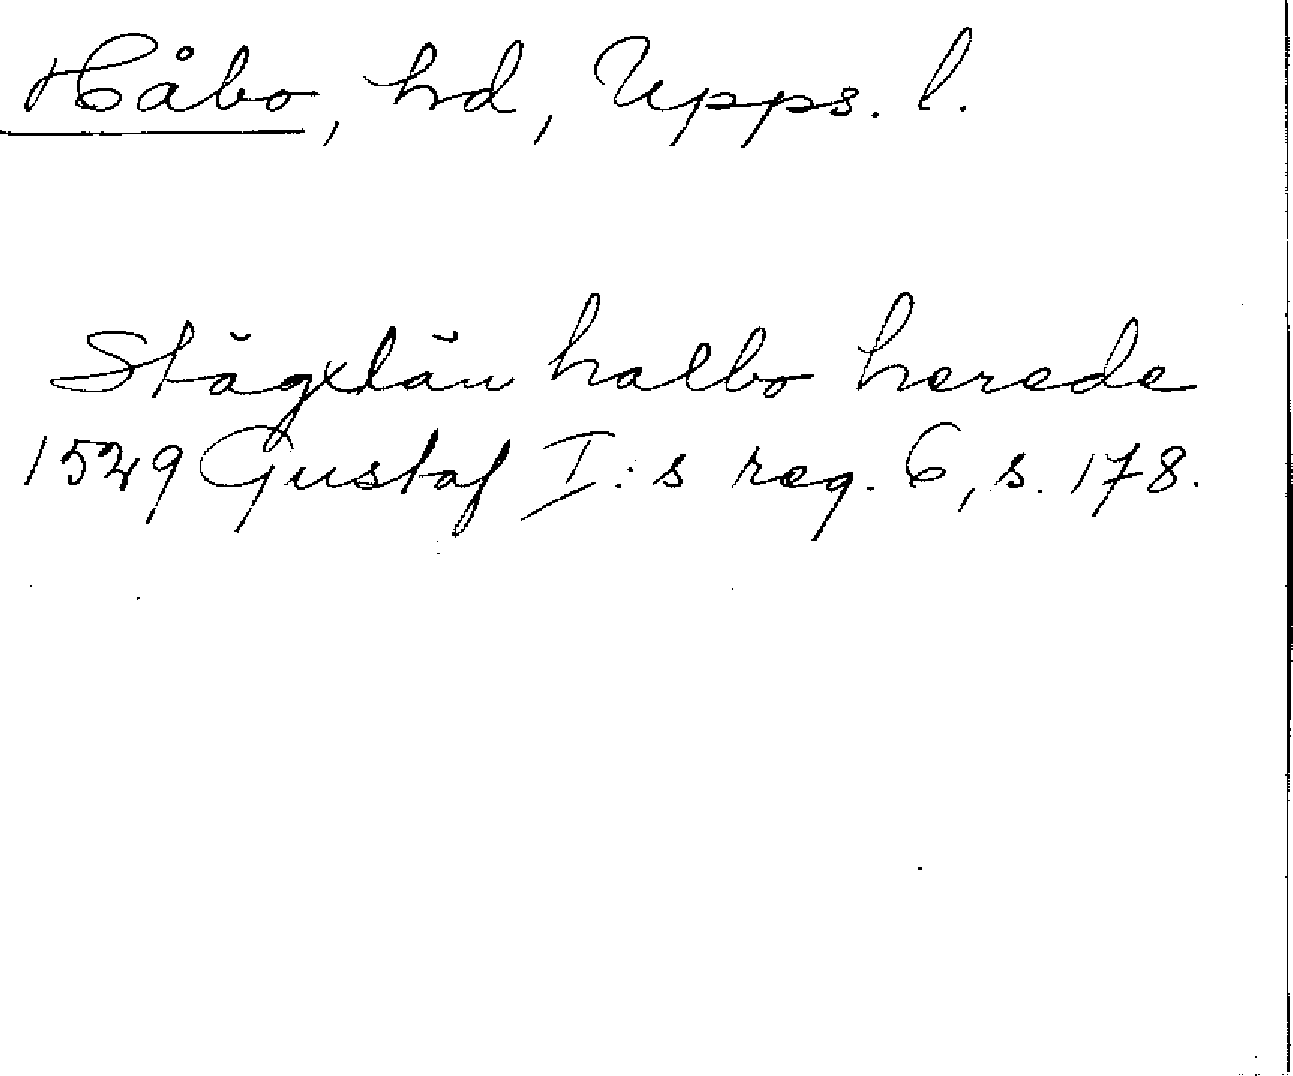 Håbo, hd, Upps. l.
Stägxlän halbo herede
1529 Gustaf I:s reg. 6, s. 178.